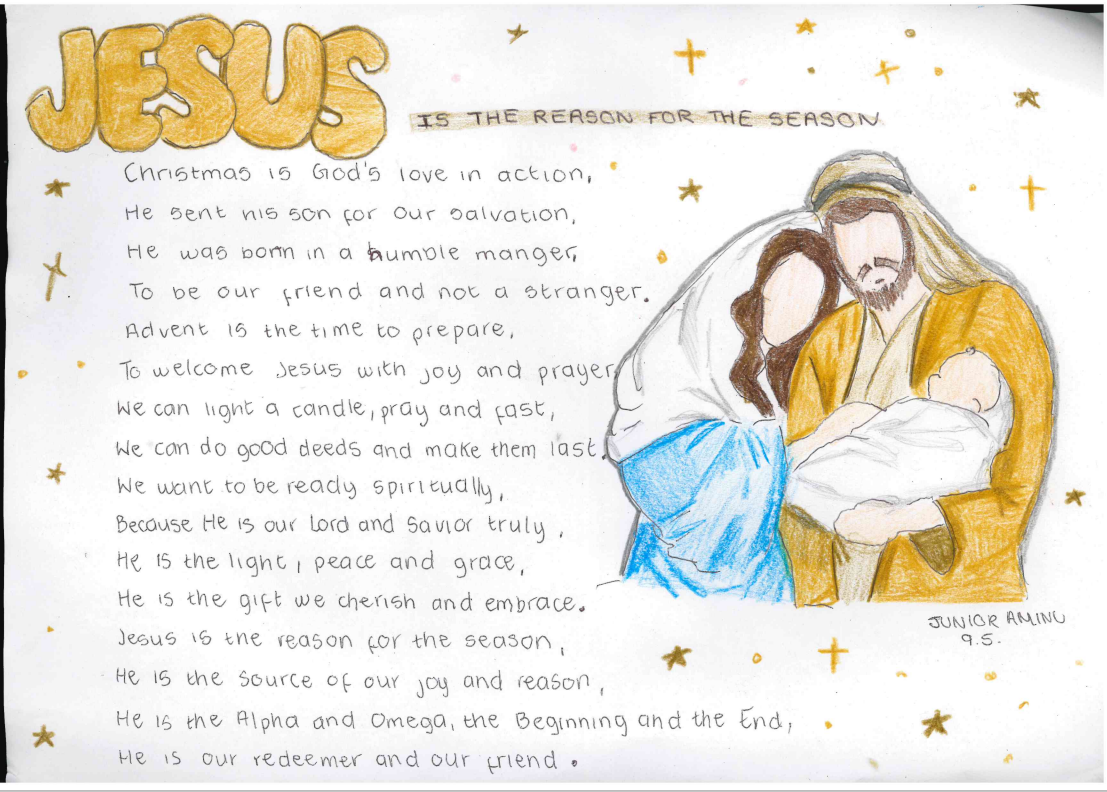 JESUS
IS THE REASON FOR THE SEASON
Christmas is God's love in action,
He sent his son for our salvation,
He was born in a humble manger,
To be our friend and not a stranger.
Advent is the time to prepare,
To welcome Jesus with joy and prayer
We can light a candle, pray and fast,
We can do good deeds and make them last.
We want to be ready spiritually,
Because He is our Lord and Savior truly,
He is the light, peace and grace,
He is the gift we cherish and embrace.
Jesus is the reason for the season,
He is the source of our joy and reason,
He is the Alpha and Omega, the Beginning and the End,
He is our redeemer and our friend.
JUNIOR AMINU
9.5.